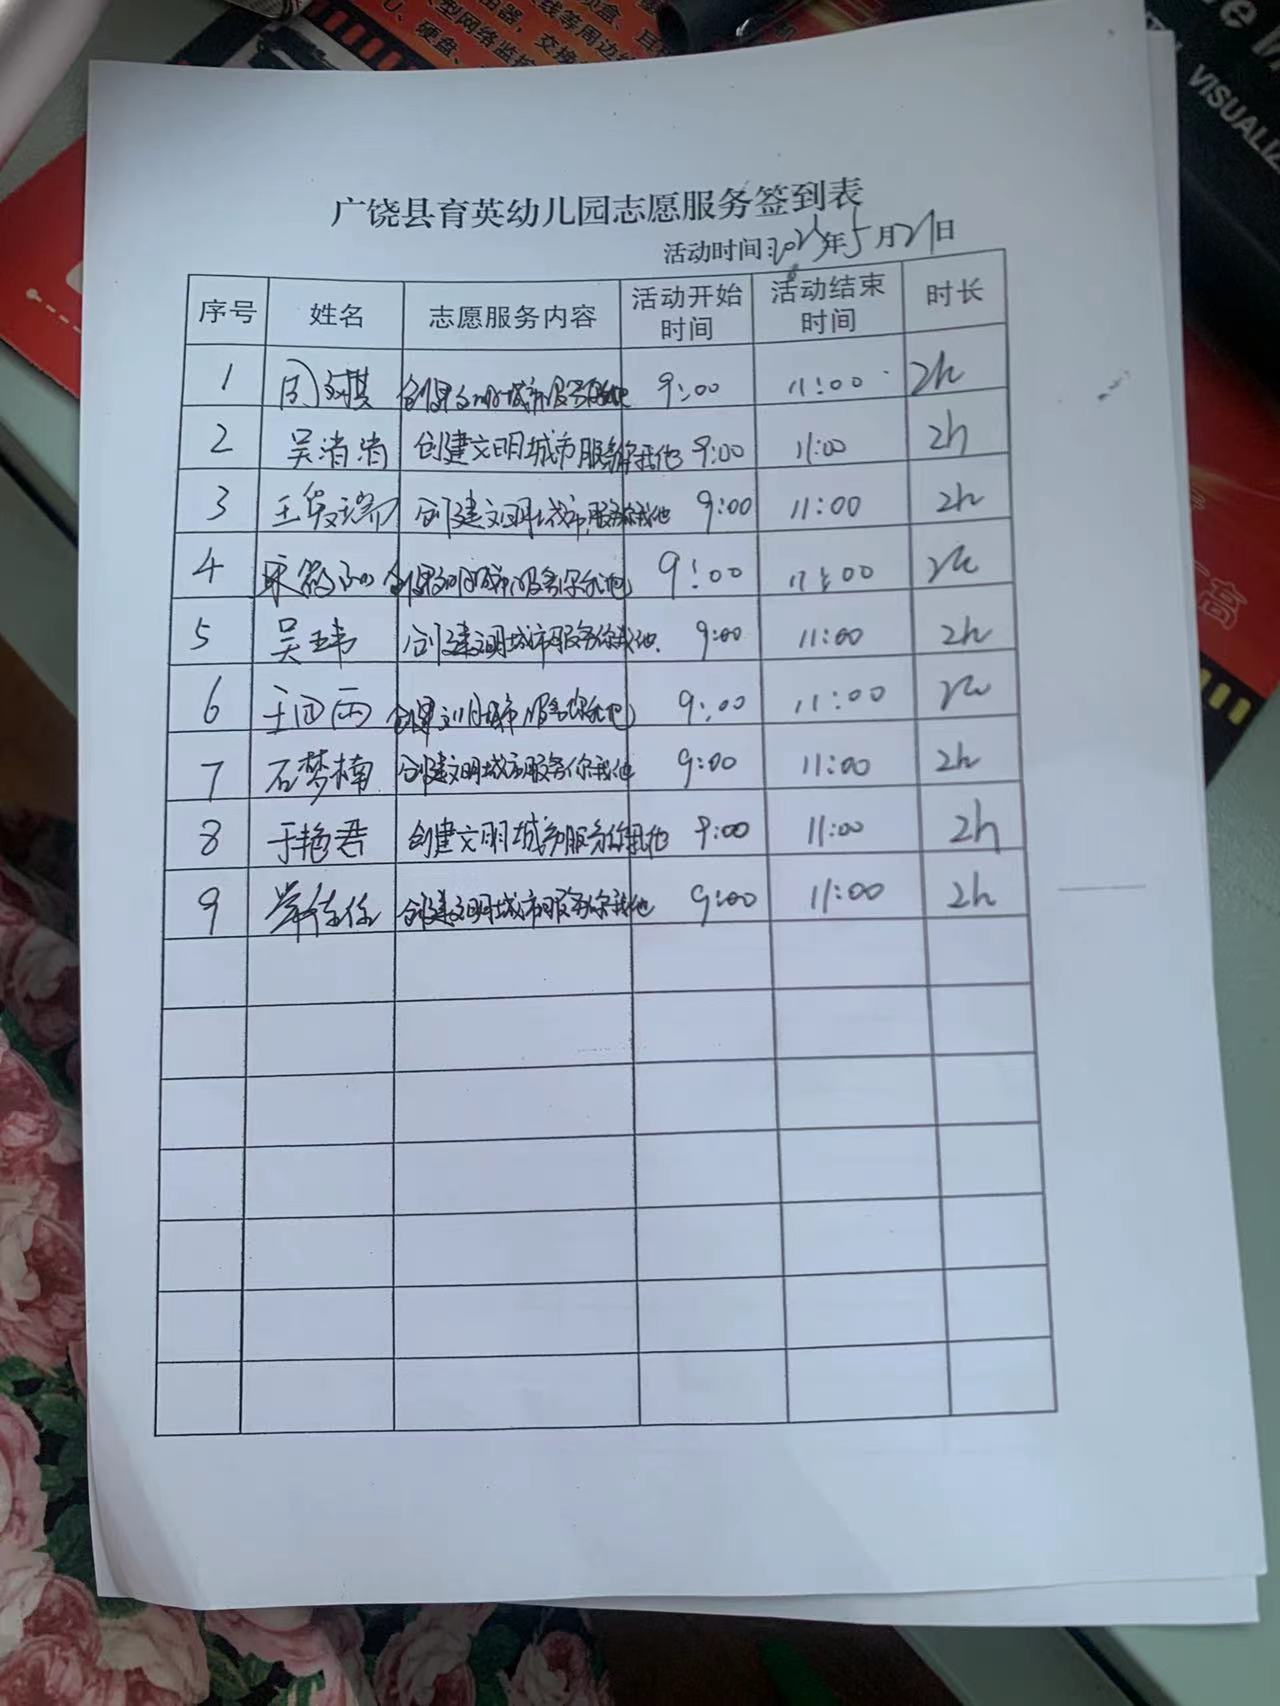 型网络监控
由器,交换
线等周边
U、硬盘、
VISUALIZ
广饶县育英幼儿园志愿服务签到表
活动时间:年5月21日
序号 姓名 志愿服务内容 活动开始时间 活动结束时间 时长
1 周 创建文明城市服务你我他 9:00 11:00 2h
2 吴消消 创建文明城市服务你我他 9:00 11:00 2h
3 王俊瑞 创建文明城市,服务你我他 9:00 11:00 2h
4 宋 创建文明城市,服务你我他 9:00 11:00 2h
5 吴玮 创建文明城市服务你我他. 9:00 11:00 2h
6 雨 创建文明城市,服务你我他 9:00 11:00 2h
7 石梦楠 创建文明城市服务你我他 9:00 11:00 2h
8 于艳君 创建文明城市服务你我他 9:00 11:00 2h
9 创建文明城市服务你我他 9:00 11:00 2h
高